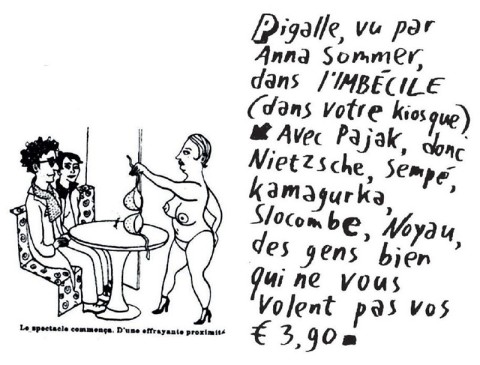 Pigalle, vu par
Anna Sommer,
dans l'IMBÉCILE
(dans votre kiosque)
Avec Pajak, donc
Nietzsche, Sempé,
Kamagurka,
Slocombe, Noyau,
des gens bien
qui ne vous
volent pas vos
€ 3,90
Le spectacle commença. D'une effrayante proximité